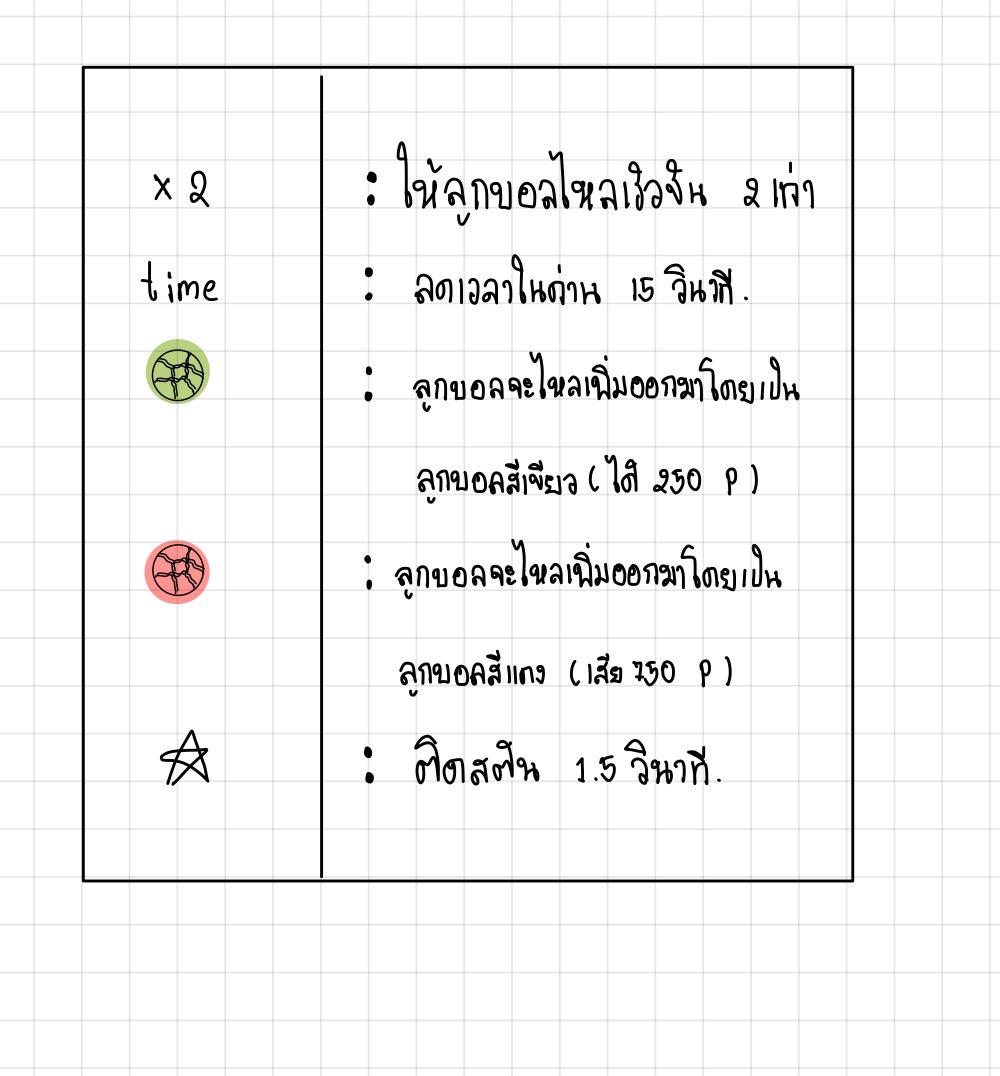 x 2 : ให้ลูกบอลไหลเร็วขึ้น 2 เท่า
time : ลดเวลาในด่าน 15 วินาที.
: ลูกบอลจะไหลเพิ่มออกมาโดยเป็น
ลูกบอลสีเขียว ( ได้ 250 P )
: ลูกบอลจะไหลเพิ่มออกมาโดยเป็น
ลูกบอลสีแดง ( เสีย 750 P )
: ติดสตัน 1.5 วินาที.